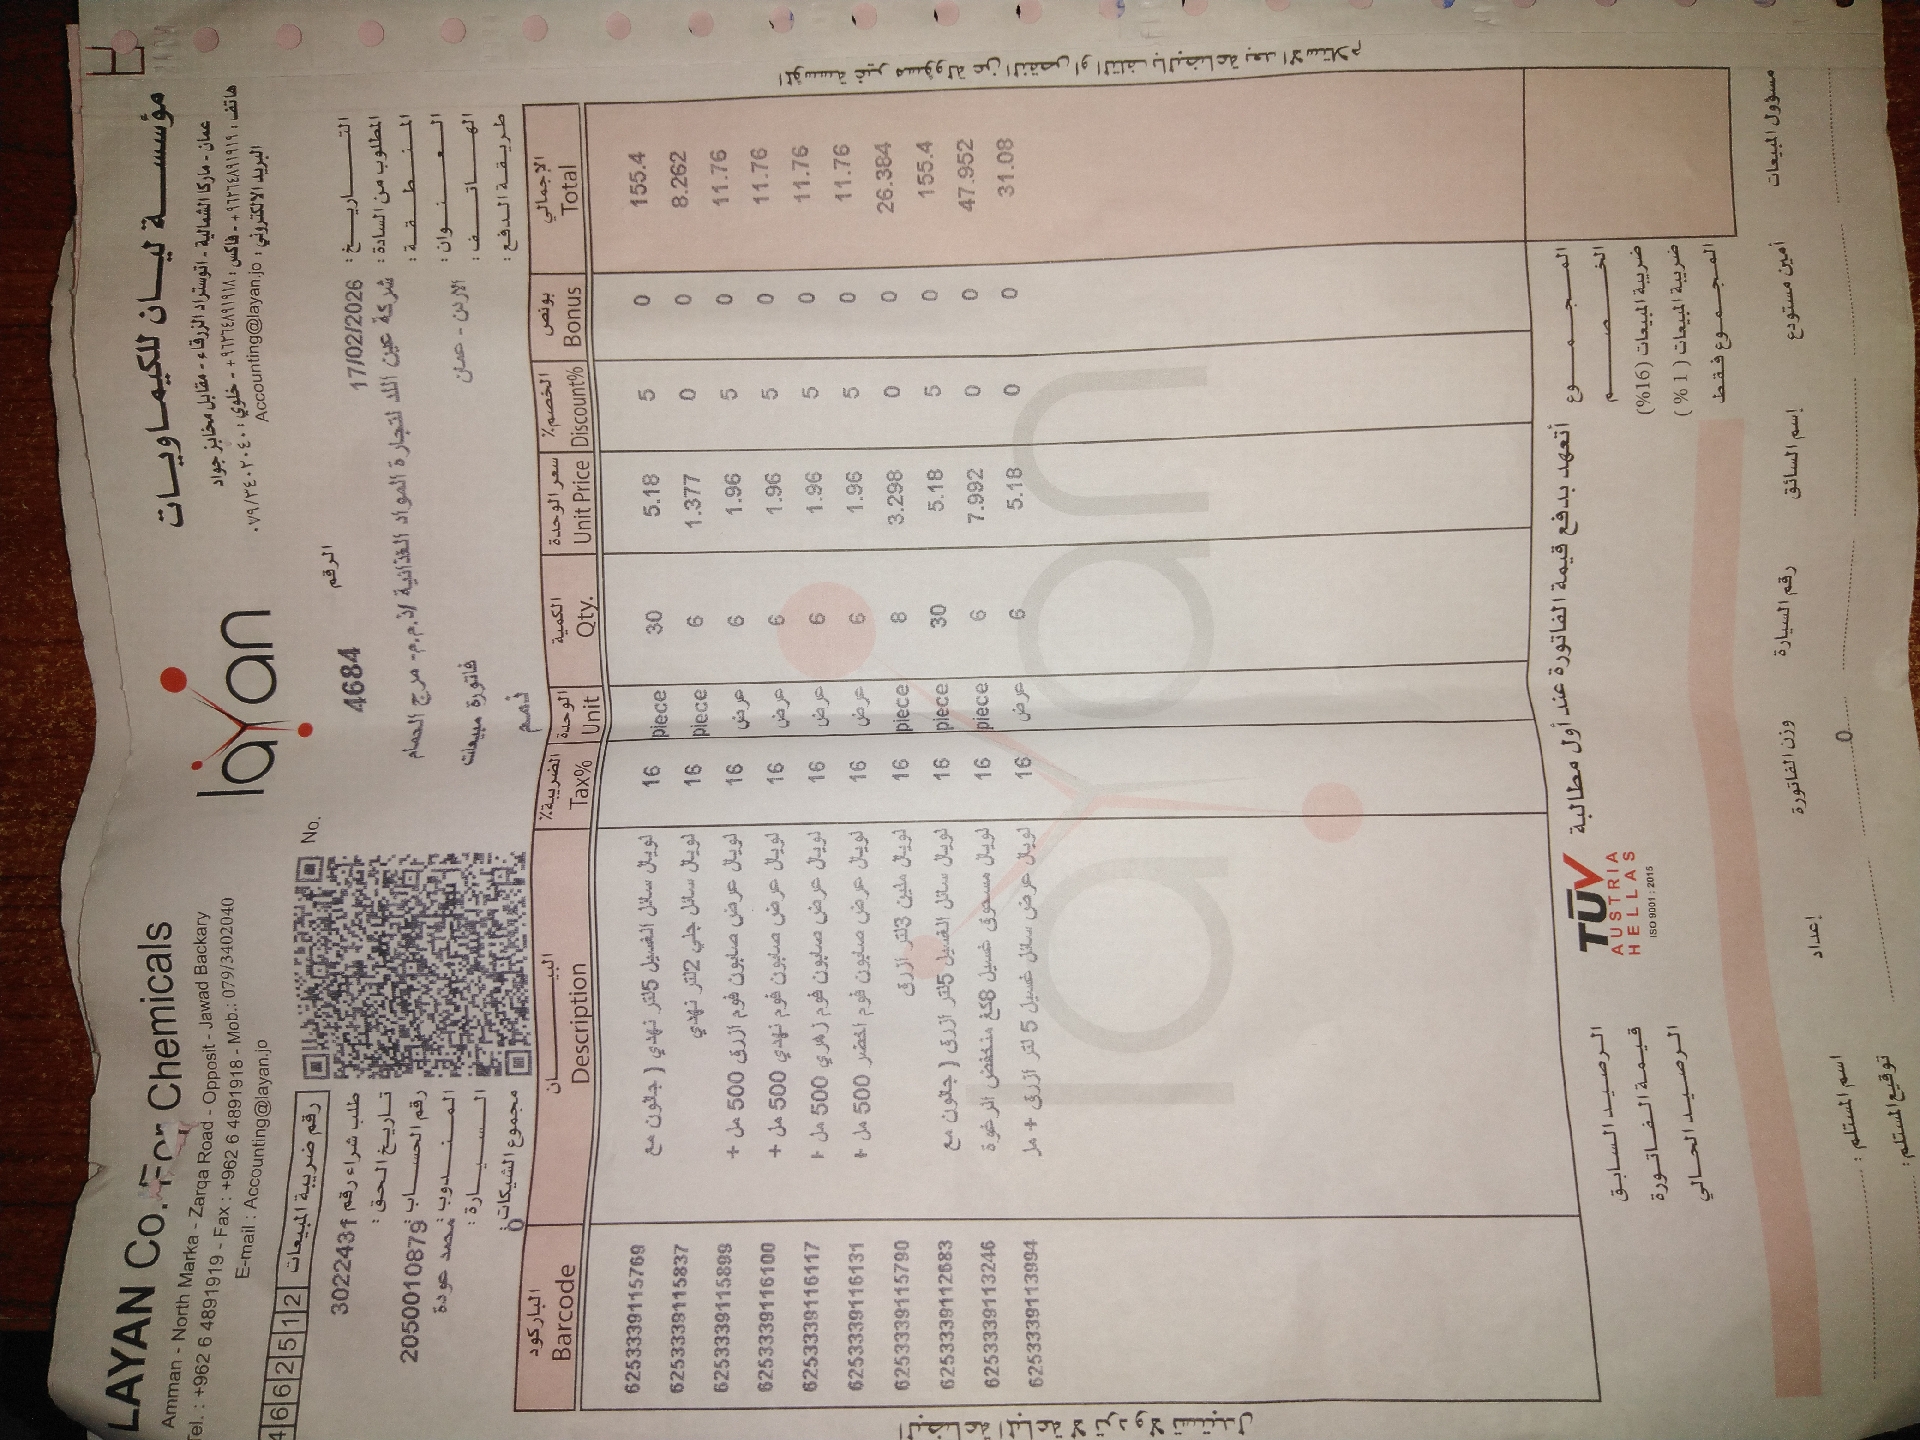 LAYAN Co. For Chemicals
مؤسسة ليان للكيماويات
layan
Amman - North Marka - Zarqa Road - Opposit - Jawad Backary
عمان - ماركا الشمالية - اتوستراد الزرقاء - مقابل مخابز جواد
Tel. : +962 6 4891919 - Fax : +962 6 4891918 - Mob.: 079/3402040
هاتف : ٩٦٢٦٤٨٩١٩١٩+ - فاكس : ٩٦٢٦٤٨٩١٩١٨+ - خلوي : ٠٧٩/٣٤٠٢٠٤٠
E-mail : Accounting@layan.jo
البريد الالكتروني : Accounting@layan.jo
4 6 6 2 5 1 2 رقم ضريبة المبيعات
No. 4684 الرقم
طلب شراء رقم 3022431
تاريخ الحق :
رقم الحساب : 2050010879
المندوب : محمد عودة
السيارة :
مجموع الشيكات : 0
التاريخ : 17/02/2026
المطلوب من السادة : شركة عين اللد لتجارة المواد الغذائية /ذ.م.م- مرج الحمام
المنطقة :
العنوان : الاردن - عمان
الهاتف : فاتورة مبيعات
طريقة الدفع : ذمم
الباركود البيان الضريبة% الوحدة الكمية سعر الوحدة الخصم% بونص الإجمالي
Barcode Description Tax% Unit Qty. Unit Price Discount% Bonus Total
6253339115769 لويال سائل الغسيل 5لتر نهدي ( جالون مع 16 piece 30 5.18 5 0 155.4
6253339115837 لويال سائل جلي 2لتر نهدي 16 piece 6 1.377 0 0 8.262
6253339115899 لويال عرض صابون فوم ازرق 500 مل + 16 عرض 6 1.96 5 0 11.76
6253339116100 لويال عرض صابون فوم نهدي 500 مل + 16 عرض 6 1.96 5 0 11.76
6253339116117 لويال عرض صابون فوم زهري 500 مل + 16 عرض 6 1.96 5 0 11.76
6253339116131 لويال عرض صابون فوم اخضر 500 مل + 16 عرض 6 1.96 5 0 11.76
6253339115790 لويال ملين 3لتر ازرق 16 piece 8 3.298 0 0 26.384
6253339112683 لويال سائل الغسيل 5لتر ازرق ( جالون مع 16 piece 30 5.18 5 0 155.4
6253339113246 لويال مسحوق غسيل 8كغ منخفض الرغوة 16 piece 6 7.992 0 0 47.952
6253339113994 لويال عرض سائل غسيل 5 لتر ازرق + مل 16 عرض 6 5.18 0 0 31.08
المؤسسة غير مسؤولة عن النقص او التلف بالبضاعة بعد الاستلام
أتعهد بدفع قيمة الفاتورة عند أول مطالبة
المجموع
الخصم
ضريبة المبيعات (16%)
ضريبة المبيعات (1 %)
المجموع فقط
TÜV
AUSTRIA
HELLAS
ISO 9001 : 2015
الرصيد السابق
قيمة الفاتورة
الرصيد الحالي
مسؤول المبيعات
أمين مستودع
إسم السائق
رقم السيارة
وزن الفاتورة
0
إعداد
اسم المستلم :
توقيع المستلم :